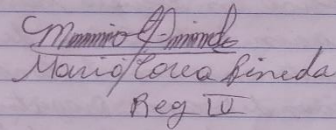 Mario Corea Pineda
Reg IV